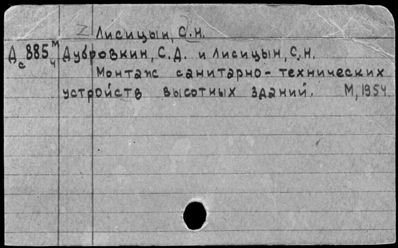 I Лисицын, С.Н.
Д 885 м Дубровкин, С.Д. и Лисицын, С.Н.
с ч Монтаж санитарно-технических
устройств высотных зданий. М, 1954.